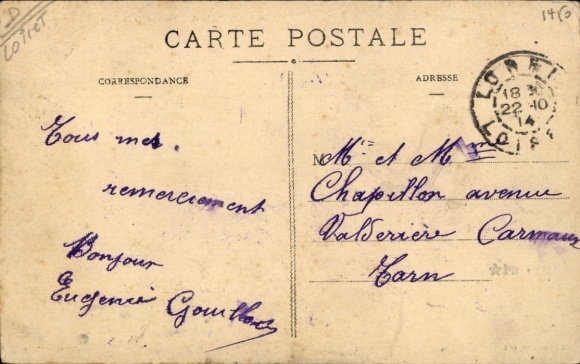 D
Loiret
1450
CARTE POSTALE
CORRESPONDANCE
ADRESSE
LORRIS
18 30
22-10
14
LOIRET
Tous mes
remerciement
Bonjour
Eugenie
M
Mr et Mme
Chapillon avenue
Valderière Carmaux
Tarn